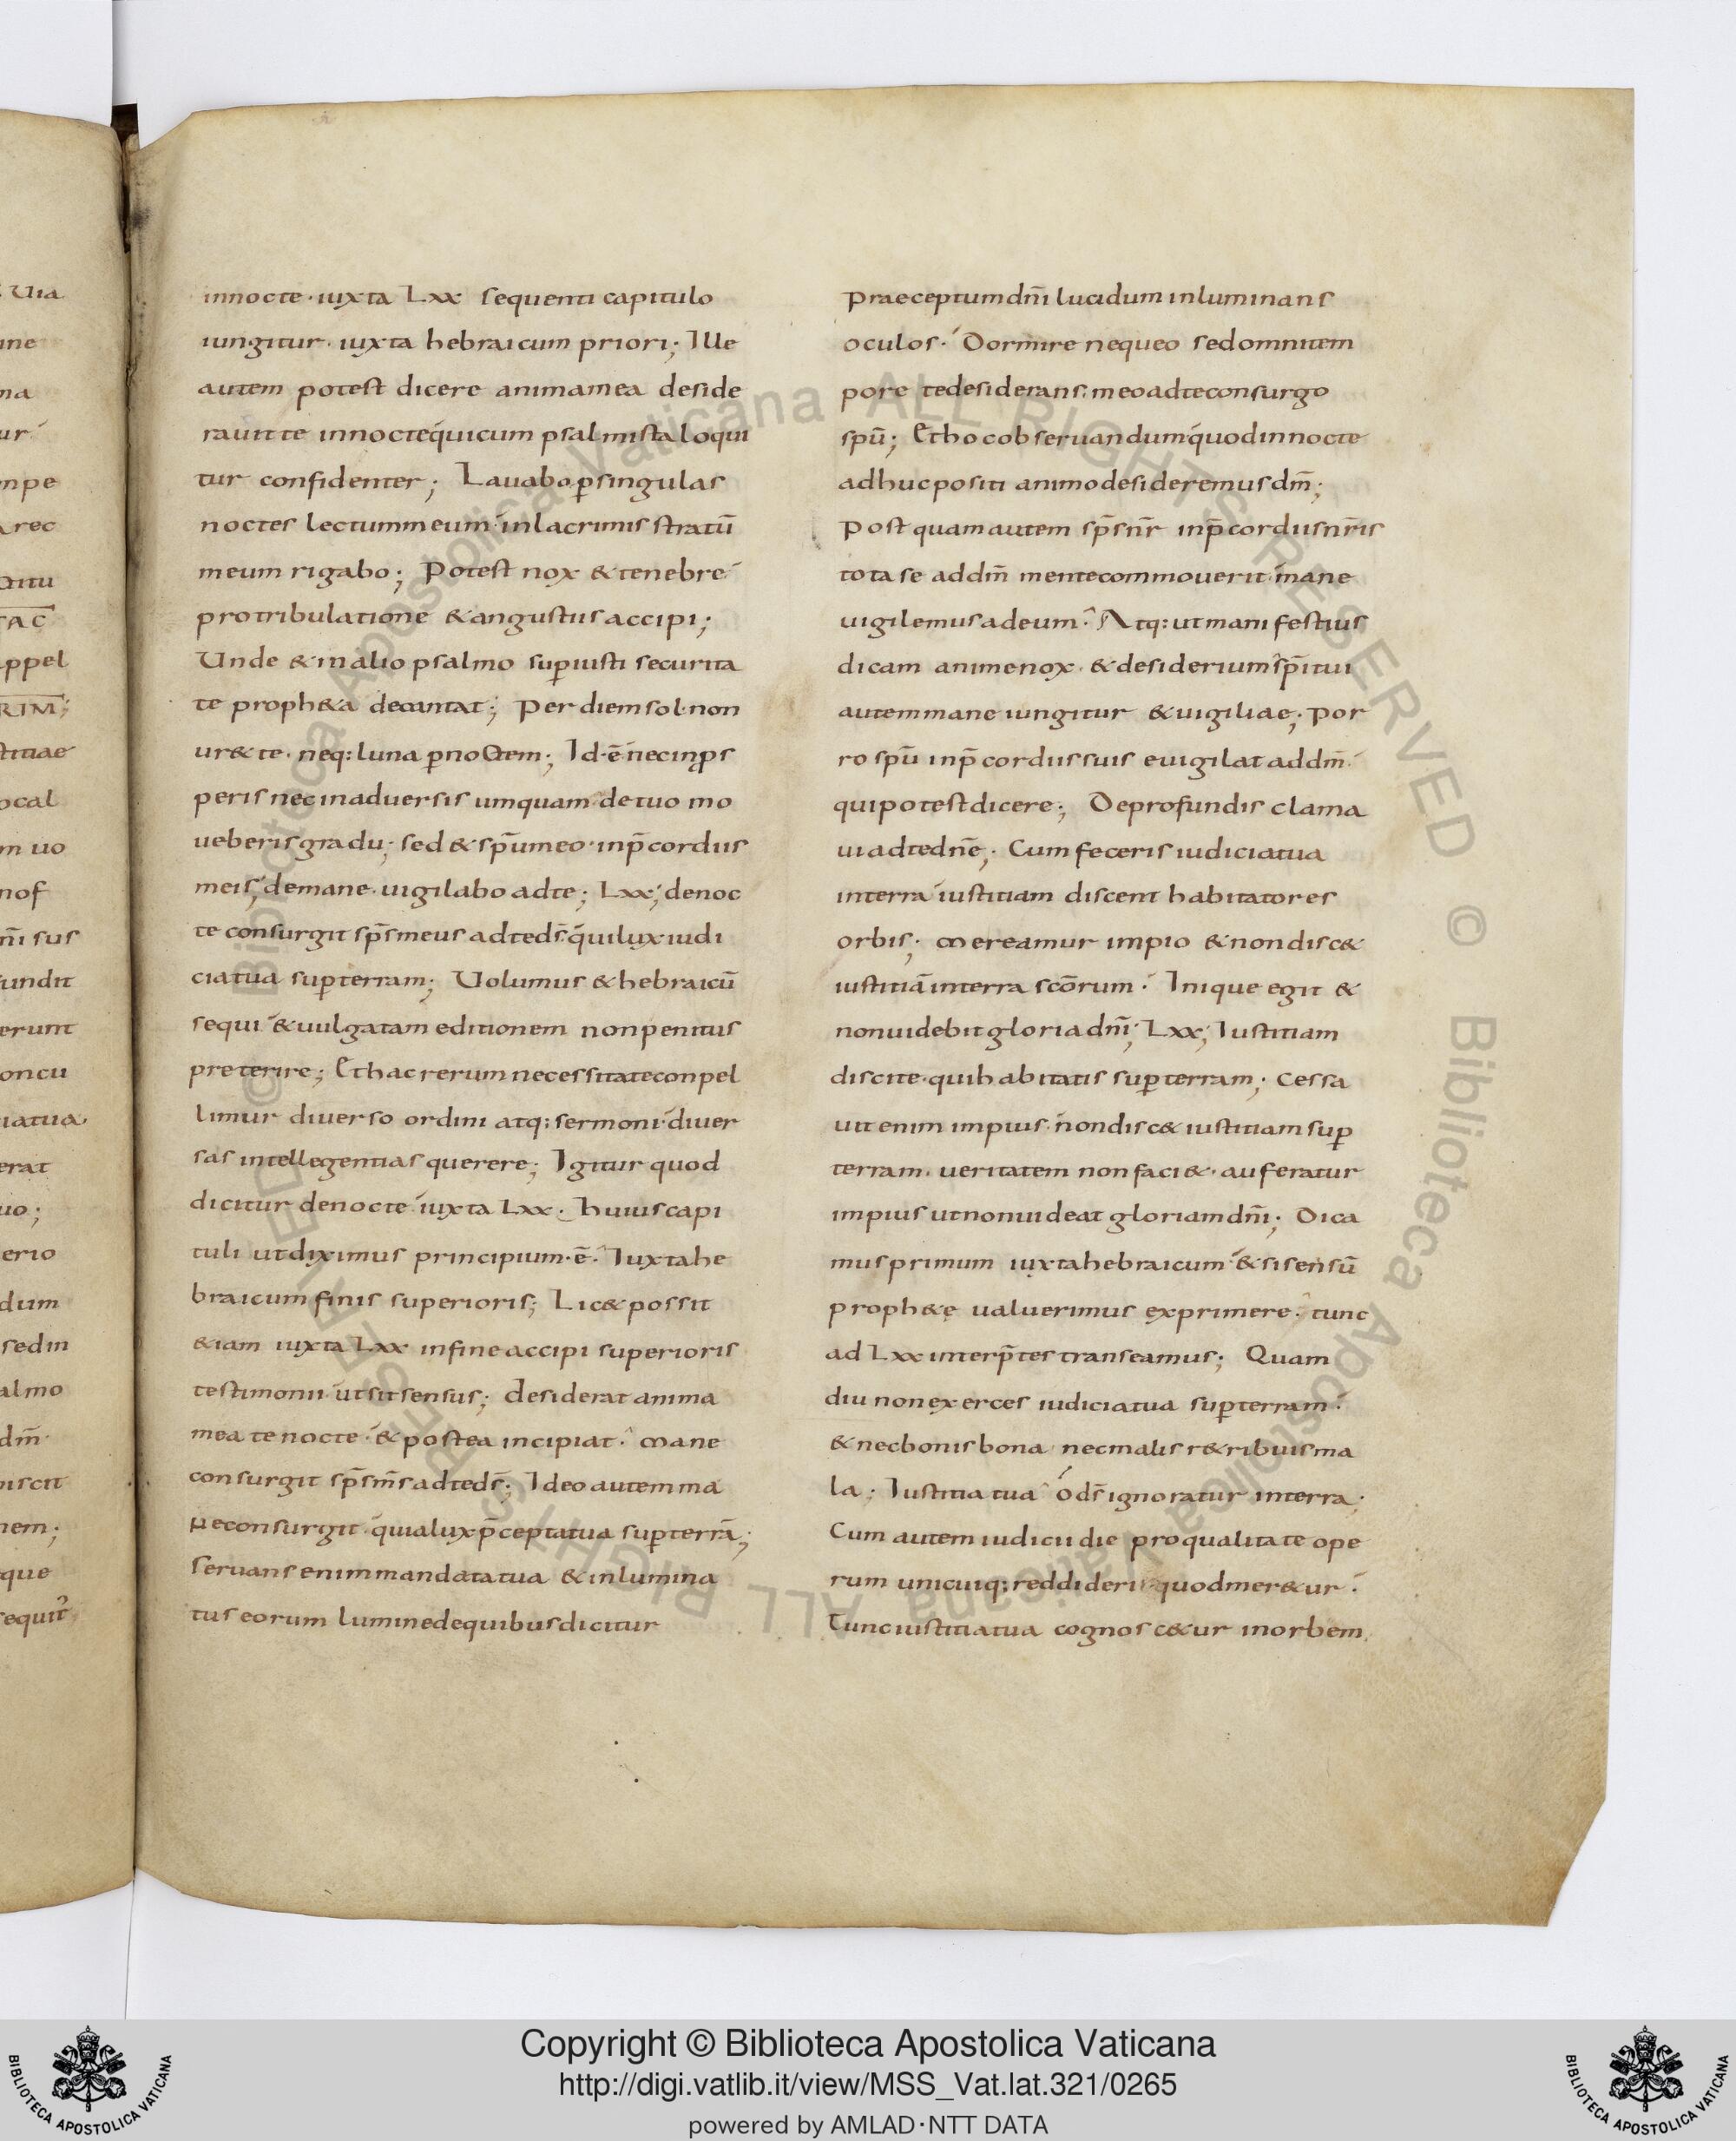 innocte· iuxta Lxx sequenti capitulo
iungitur· iuxta hebraicum priori; Ille
autem potest dicere animamea deside
rauit te innocte quicum psalmista loqui
tur confidenter; Lauabo ꝑsingulas
noctes lectummeum· inlacrimis stratū
meum rigabo; Potest nox & tenebre
protribulatione & angustiis accipi;
Unde & inalio psalmo suꝑiusti securita
te proph&a decantat; Per diem sol· non
ur& te· neq: luna ꝑnoctem; Id·ē· necinꝓs
peris necinaduersis umquam detuo mo
ueberis gradu; sed & sp̄umeo· inp̄cordiis
meis; demane· uigilabo adte; Lxx; denoc
te consurgit sp̄s meus adteds̄· quilux iudi
ciatua suꝑterram; Uolumus & hebraicū
sequi & uulgatam editionem nonpenitus
preterire; Ethac rerum necessitateconpel
limur diuerso ordini atq: sermoni· diuer
sas intellegentias querere; Igitur quod
dicitur denocte iuxta Lxx· huius capi
tuli utdiximus principium·ē· Iuxtahe
braicum finis superioris; Lic& possit
&iam iuxta Lxx infine accipi superioris
testimonii· utsit sensus; desiderat anima
mea te nocte· & postea incipiat· mane
consurgit sp̄s ms̄ adteds̄; Ideo autem ma
neconsurgit· quialux p̄ceptatua suꝑterrā;
seruans enim mandatatua & inlumina
tus eorum luminedequibus dicitur
praeceptum dn̄i lucidum inluminans
oculos· Dormire nequeo sedomnitem
pore tedesiderans· meoadteconsurgo
spū; Ethoc obseruandum quodinnocte
adhucpositi animodesideremus dm̄;
Post quam autem sp̄s nr̄ inp̄cordiis nr̄is
tota se addm̄ mentecommouerit· mane
uigilemus adeum· Atq: ut manifestius
dicam anime nox· & desiderium sp̄itui
autem mane iungitur & uigiliae; por
ro spū inp̄cordiis suis euigilat addm̄
quipotestdicere; Deprofundis clama
ui adtedn̄e; Cum feceris iudiciatua
interra iustitiam discent habitatores
orbis; mereamur impio & nondisc&
iustitiā interra scōrum· Inique egit &
nonuidebit gloria dn̄i; Lxx; Iustitiam
discite· quihabitatis suꝑterram; Cessa
uit enim impius· nondisc& iustitiam suꝑ
terram· ueritatem non faci&· auferatur
impius utnonuideat gloriam dn̄i; Dica
mus primum iuxtahebraicum & si sensū
proph&ę ualuerimus exprimere· tunc
ad Lxx interp̄tes transeamus; Quam
diu nonexerces iudiciatua suꝑterram·
& necbonis bona necmalis r&ribuis ma
la; Iustitia tua ods̄ ignoratur interra;
Cum autem iudicii die proqualitate ope
rum unicuiq: reddideris quodmer&ur·
Tunc iustitiatua cognosc&ur inorbem
Copyright © Biblioteca Apostolica Vaticana
http://digi.vatlib.it/view/MSS_Vat.lat.321/0265
powered by AMLAD·NTT DATA
BIBLIOTECA APOSTOLICA VATICANA
BIBLIOTECA APOSTOLICA VATICANA